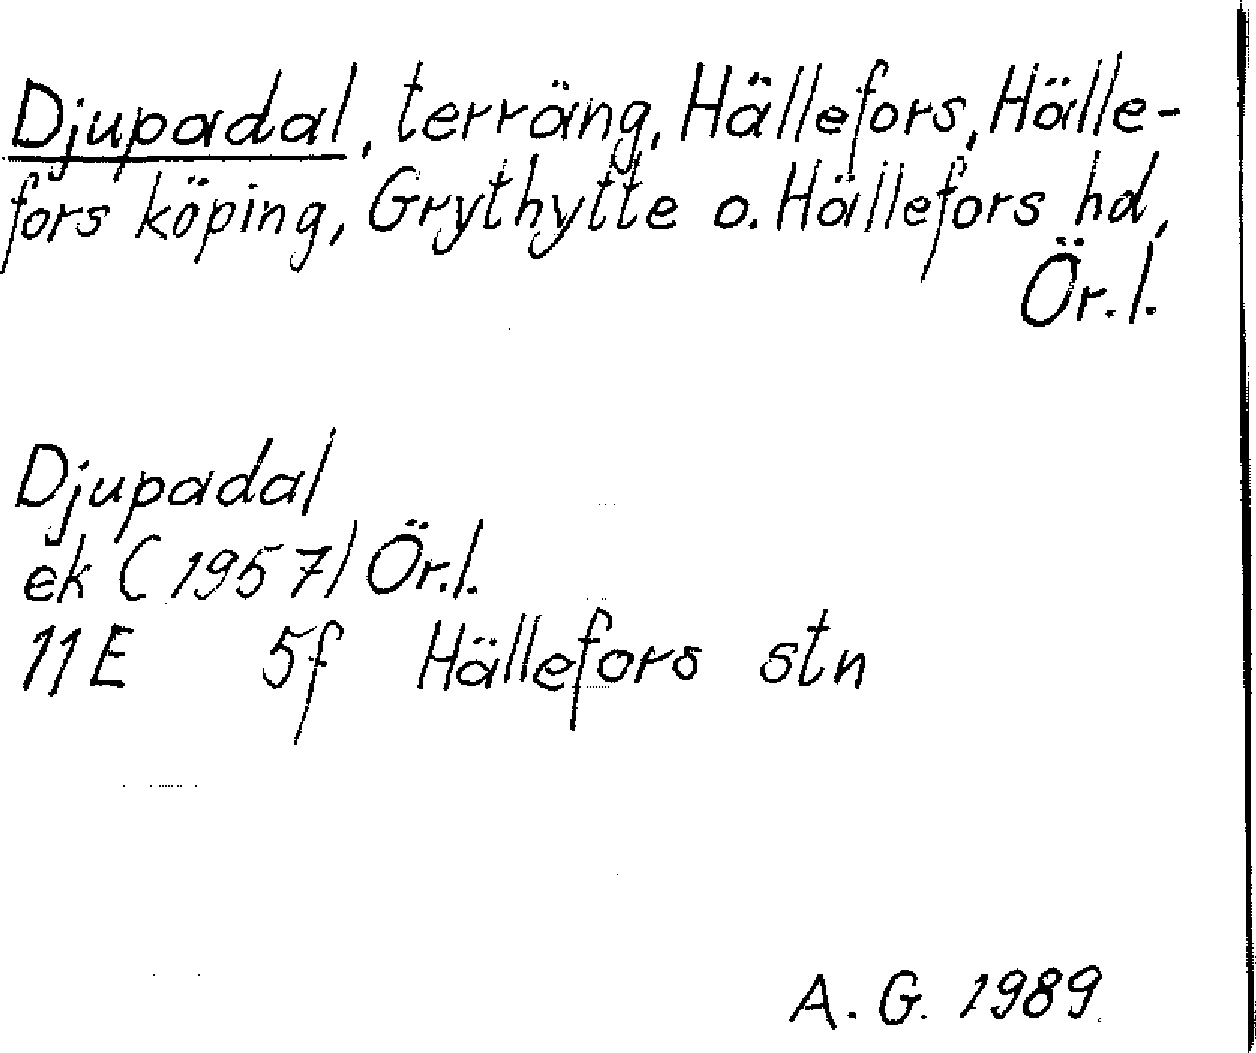 Djupadal, terräng, Hällefors, Hälle-
fors köping, Grythytte o. Hällefors hd,
Ör. l.
Djupadal
ek (1957) Ör. l.
11E 5f Hällefors stn
A. G. 1989